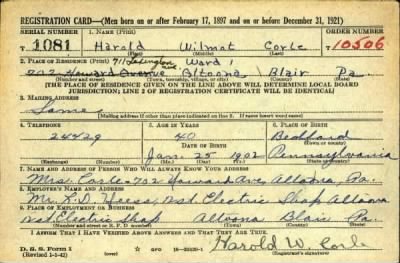 REGISTRATION CARD—(Men born on or after February 17, 1897 and on or before December 31, 1921)
SERIAL NUMBER 1. NAME (Print) ORDER NUMBER
T 1081 Harold Wilmot Corle 10506
(First) (Middle) (Last)
2. PLACE OF RESIDENCE (Print) 711 Lexington Ave. Ward 1
Howard Avenue Altoona Blair Pa.
(Number and street) (Town, township, village, or city) (County) (State)
[THE PLACE OF RESIDENCE GIVEN ON THE LINE ABOVE WILL DETERMINE LOCAL BOARD
JURISDICTION; LINE 2 OF REGISTRATION CERTIFICATE WILL BE IDENTICAL]
3. MAILING ADDRESS
Same
[Mailing address if other than place indicated on line 2. If same insert word same]
4. TELEPHONE 5. AGE IN YEARS 6. PLACE OF BIRTH
24429 40 Bedford
DATE OF BIRTH (Town or county)
Jan. 25 1902 Pennsylvania
(Exchange) (Number) (Mo.) (Day) (Yr.) (State or country)
7. NAME AND ADDRESS OF PERSON WHO WILL ALWAYS KNOW YOUR ADDRESS
Mrs. Corle - 732 Howard Ave, Altoona, Pa.
8. EMPLOYER'S NAME AND ADDRESS
Mr. Electric Shop Altoona
9. PLACE OF EMPLOYMENT OR BUSINESS
Electric Shop Altoona Blair Pa.
(Number and street or R. F. D. number) (Town) (County) (State)
I AFFIRM THAT I HAVE VERIFIED ABOVE ANSWERS AND THAT THEY ARE TRUE.
D. S. S. Form 1
(Revised 1-1-42) GPO Harold W. Corle
(Registrant's signature)